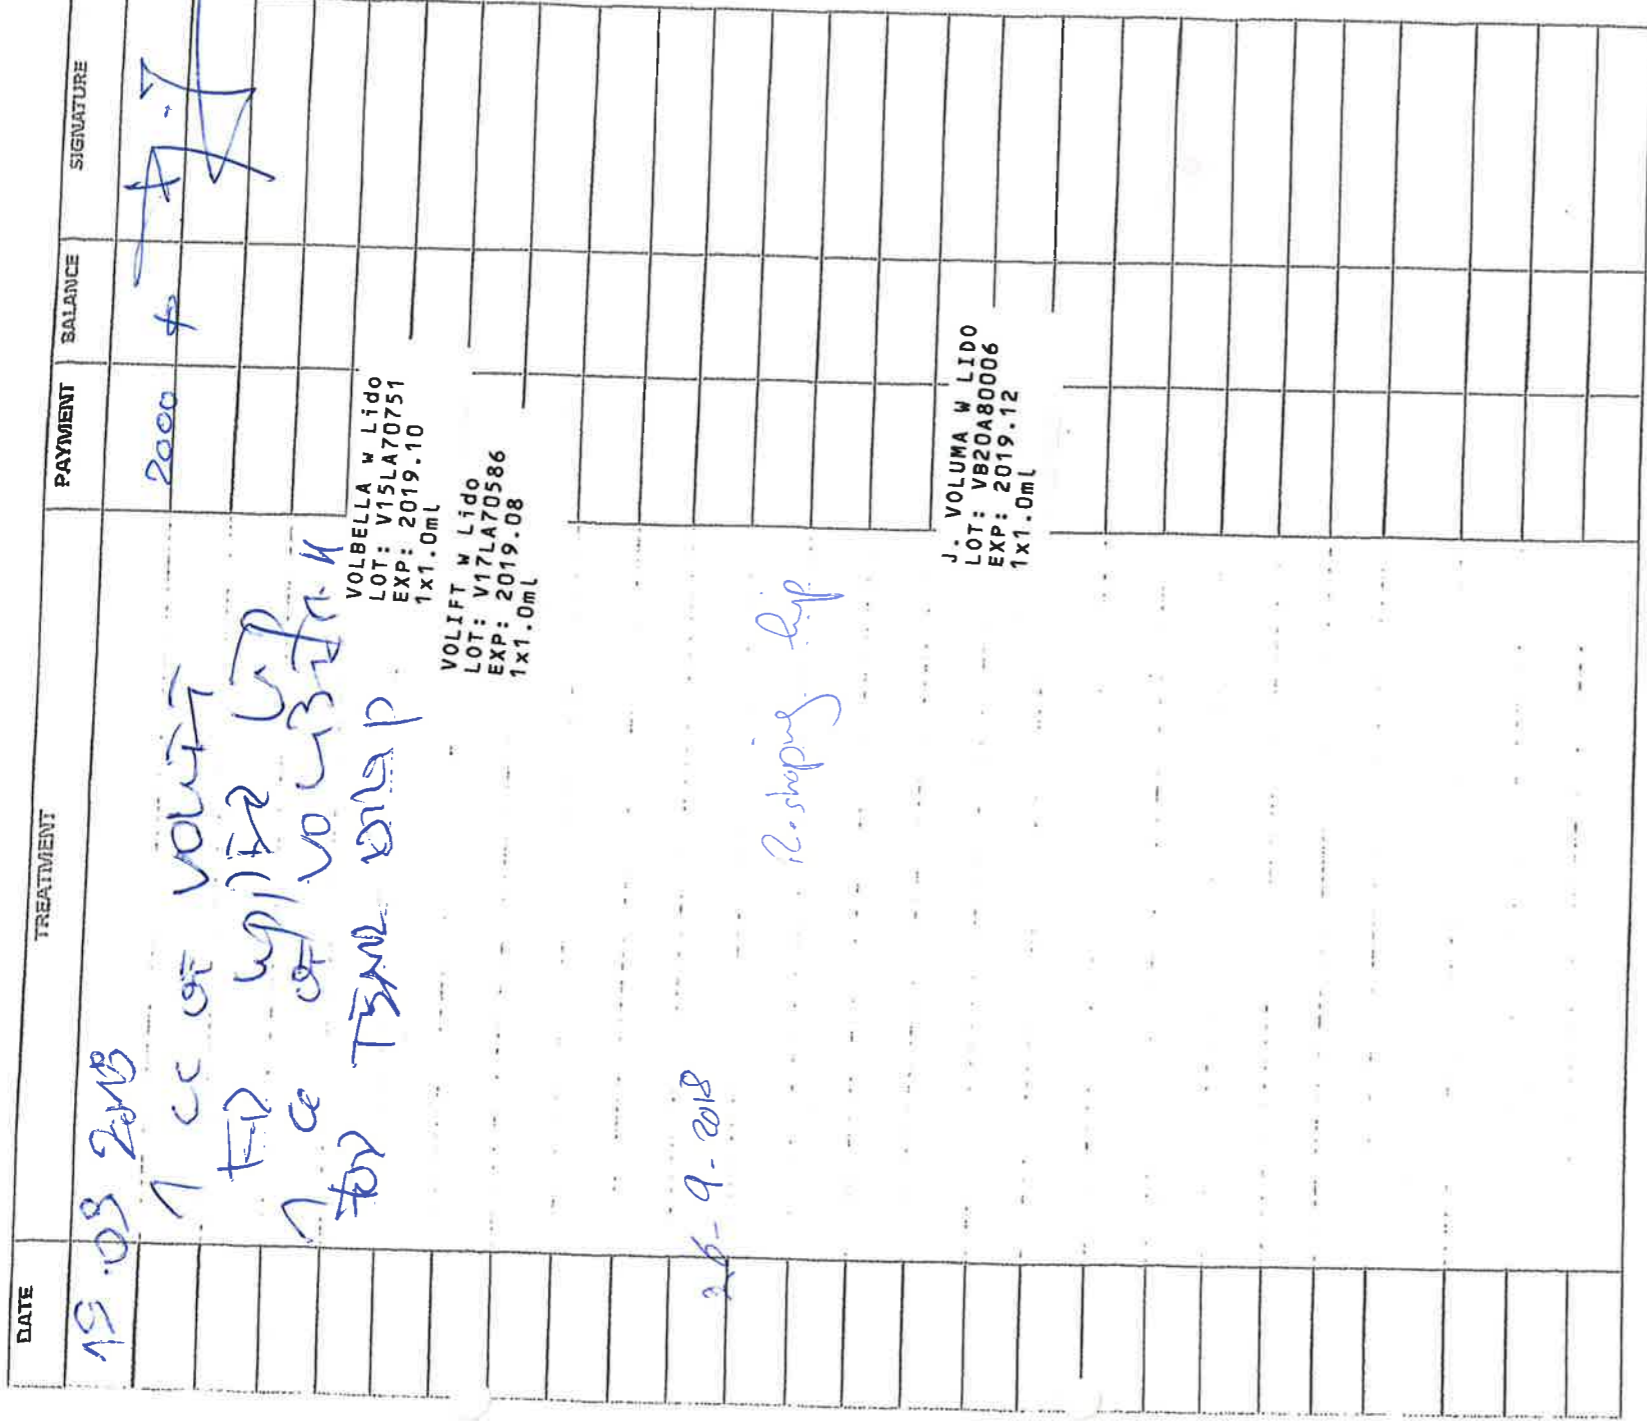 DATE TREATMENT PAYMENT BALANCE SIGNATURE
2000
1 cc OF VOLIFT
UPPER LIP
1 cc OF
FOR TEAR
VOLBELLA w Lido
LOT: V15LA70751
EXP: 2019.10
1x1.0ml
VOLIFT w Lido
LOT: V17LA70586
EXP: 2019.08
1x1.0ml
26-9-2018
Reshaping lip
J. VOLUMA W LIDO
LOT: VB20A80006
EXP: 2019.12
1x1.0ml